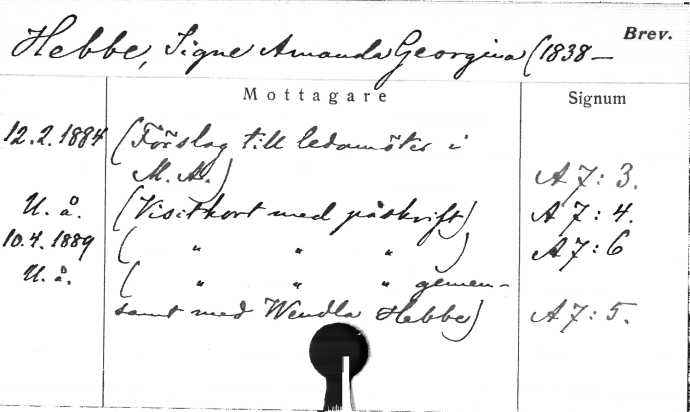 Brev.
Hebbe, Signe Amanda Georgina (1838–
Mottagare Signum
12.2.1884 (Förslag till ledamöter i
M. A.) A 7: 3.
U. å. (Visitkort med påskrift) A 7: 4.
10.4.1889 ( " " " ) A 7: 6
U. å. ( " " " gemen-
samt med Wendla Hebbe) A 7: 5.